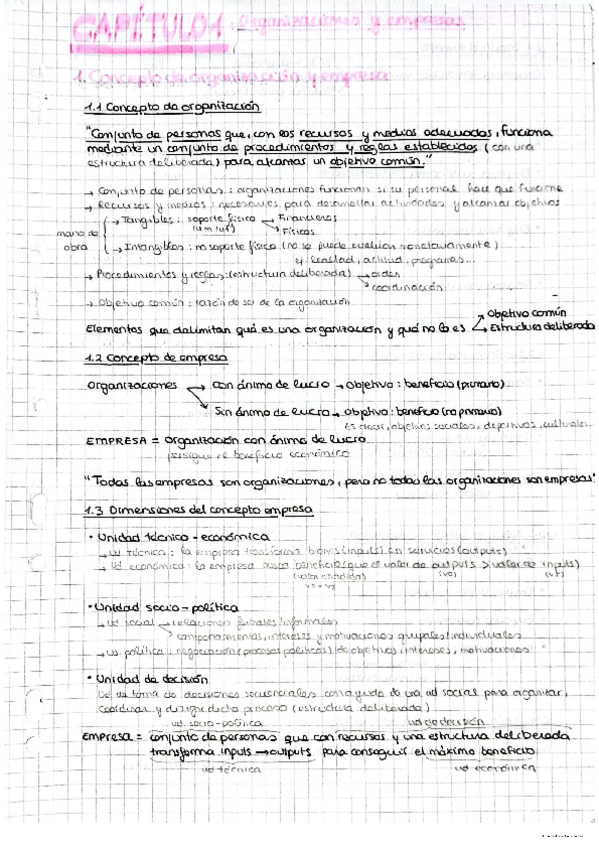 CAPÍTULO 1: Organizaciones y empresas
1. Concepto de organización y empresa
1.1 Concepto de organización
"Conjunto de personas que, con los recursos y medios adecuados, funciona
mediante un conjunto de procedimientos y reglas establecidos (con una
estructura deliberada) para alcanzar un objetivo común."
→ Conjunto de personas: organizaciones funcionan si su personal hace que funcione
→ Recursos y medios: necesarios para desarrollar actividades y alcanzar objetivos
mano de obra
→ Tangibles: soporte físico → Financieros
(um/uf) → Físicos
→ Intangibles: no soporte físico (no se puede evaluar monetariamente)
ej: lealtad, actitud, programas...
→ Procedimientos y reglas: (estructura deliberada) → orden
→ coordinación
→ Objetivo común: razón de ser de la organización
Elementos que delimitan qué es una organización y qué no lo es → Objetivo común
→ Estructura deliberada
1.2 Concepto de empresa
Organizaciones → Con ánimo de lucro → Objetivo: beneficio (primario)
→ Sin ánimo de lucro → Objetivo: beneficio (no primario)
Es decir, objetivos sociales, deportivos, culturales...
EMPRESA = Organización con ánimo de lucro
persigue el beneficio económico
"Todas las empresas son organizaciones, pero no todas las organizaciones son empresas"
1.3 Dimensiones del concepto empresa
• Unidad técnico-económica
→ Ud técnica: la empresa transforma bienes (inputs) en servicios (outputs)
→ Ud económica: la empresa busca beneficio (que el valor de outputs > valor de inputs)
(valor añadido) (vo) (vi)
• Unidad socio-política
→ ud social → relaciones formales/informales
→ comportamientos, intereses y motivaciones grupales/individuales
→ ud política: negociación (procesos políticos) de objetivos, intereses, motivaciones
• Unidad de decisión
Ud de toma de decisiones secuenciales con ayuda de una ud social para organizar,
coordinar y dirigir dicho proceso (estructura deliberada)
ud. socio-política ud de decisión
Empresa = conjunto de personas que con recursos y una estructura deliberada
transforma inputs → outputs para conseguir el máximo beneficio
ud técnica ud económica